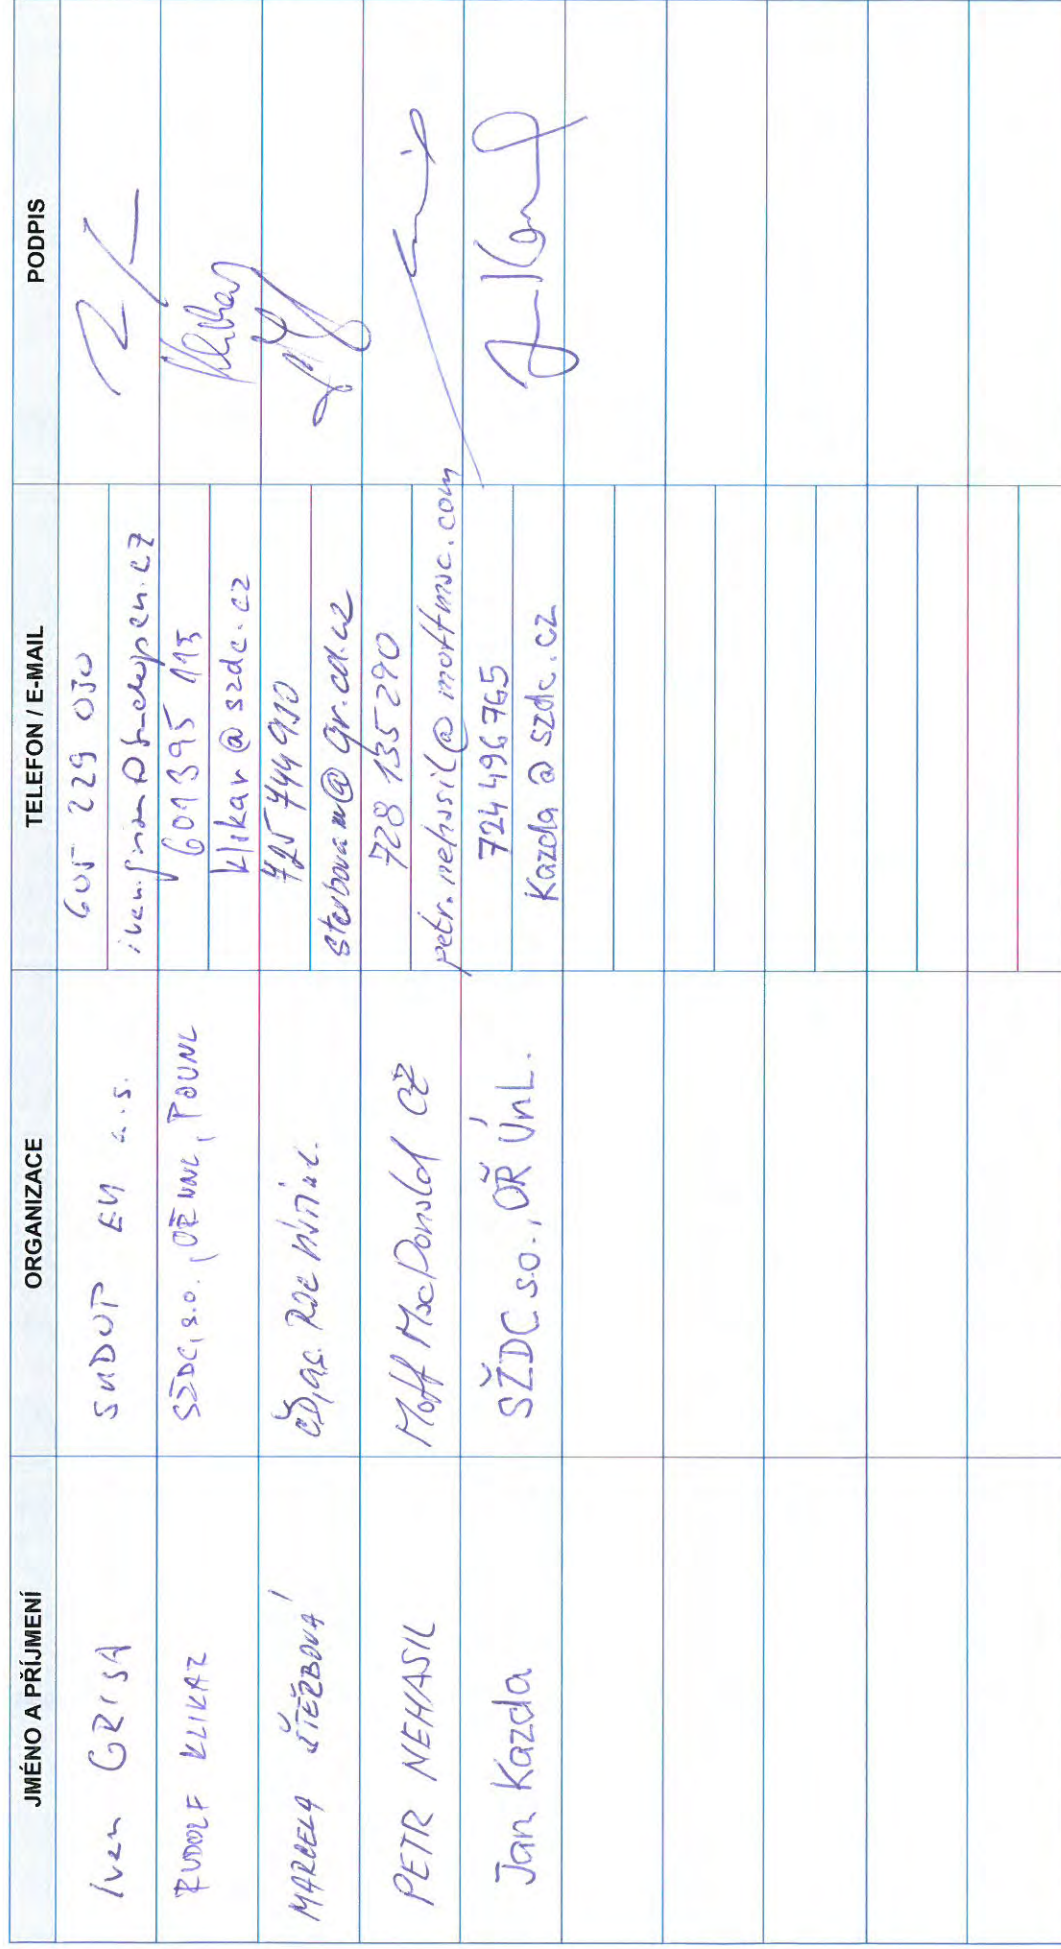 JMÉNO A PŘÍJMENÍ ORGANIZACE TELEFON / E-MAIL PODPIS
Ivan GRISA SUDOP EU a.s. 605 229 030
RUDOLF KLIKAR SŽDC, s.o., OŘ UNL, 601395 113
klikar@szdc.cz
MARCELA ŠTĚRBOVÁ ČD, a.s. 725 744 910
sterbovam@gr.cd.cz
PETR NEHASIL Mott MacDonald CZ 728 135 290
petr.nehasil@mottmac.com
Jan Kazda SŽDC s.o., OŘ ÚnL. 724 496 765
Kazda@szdc.cz